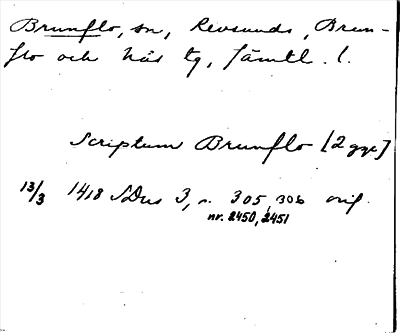 Brunflo, sn, Revsunds, Brun-
flo och Näs tg, Jämtl. l.
Scriptum Brunflo [2 ggr]
13/3 1418 SDns 3, n. 305, 306 orig.
nr. 2450, 2451